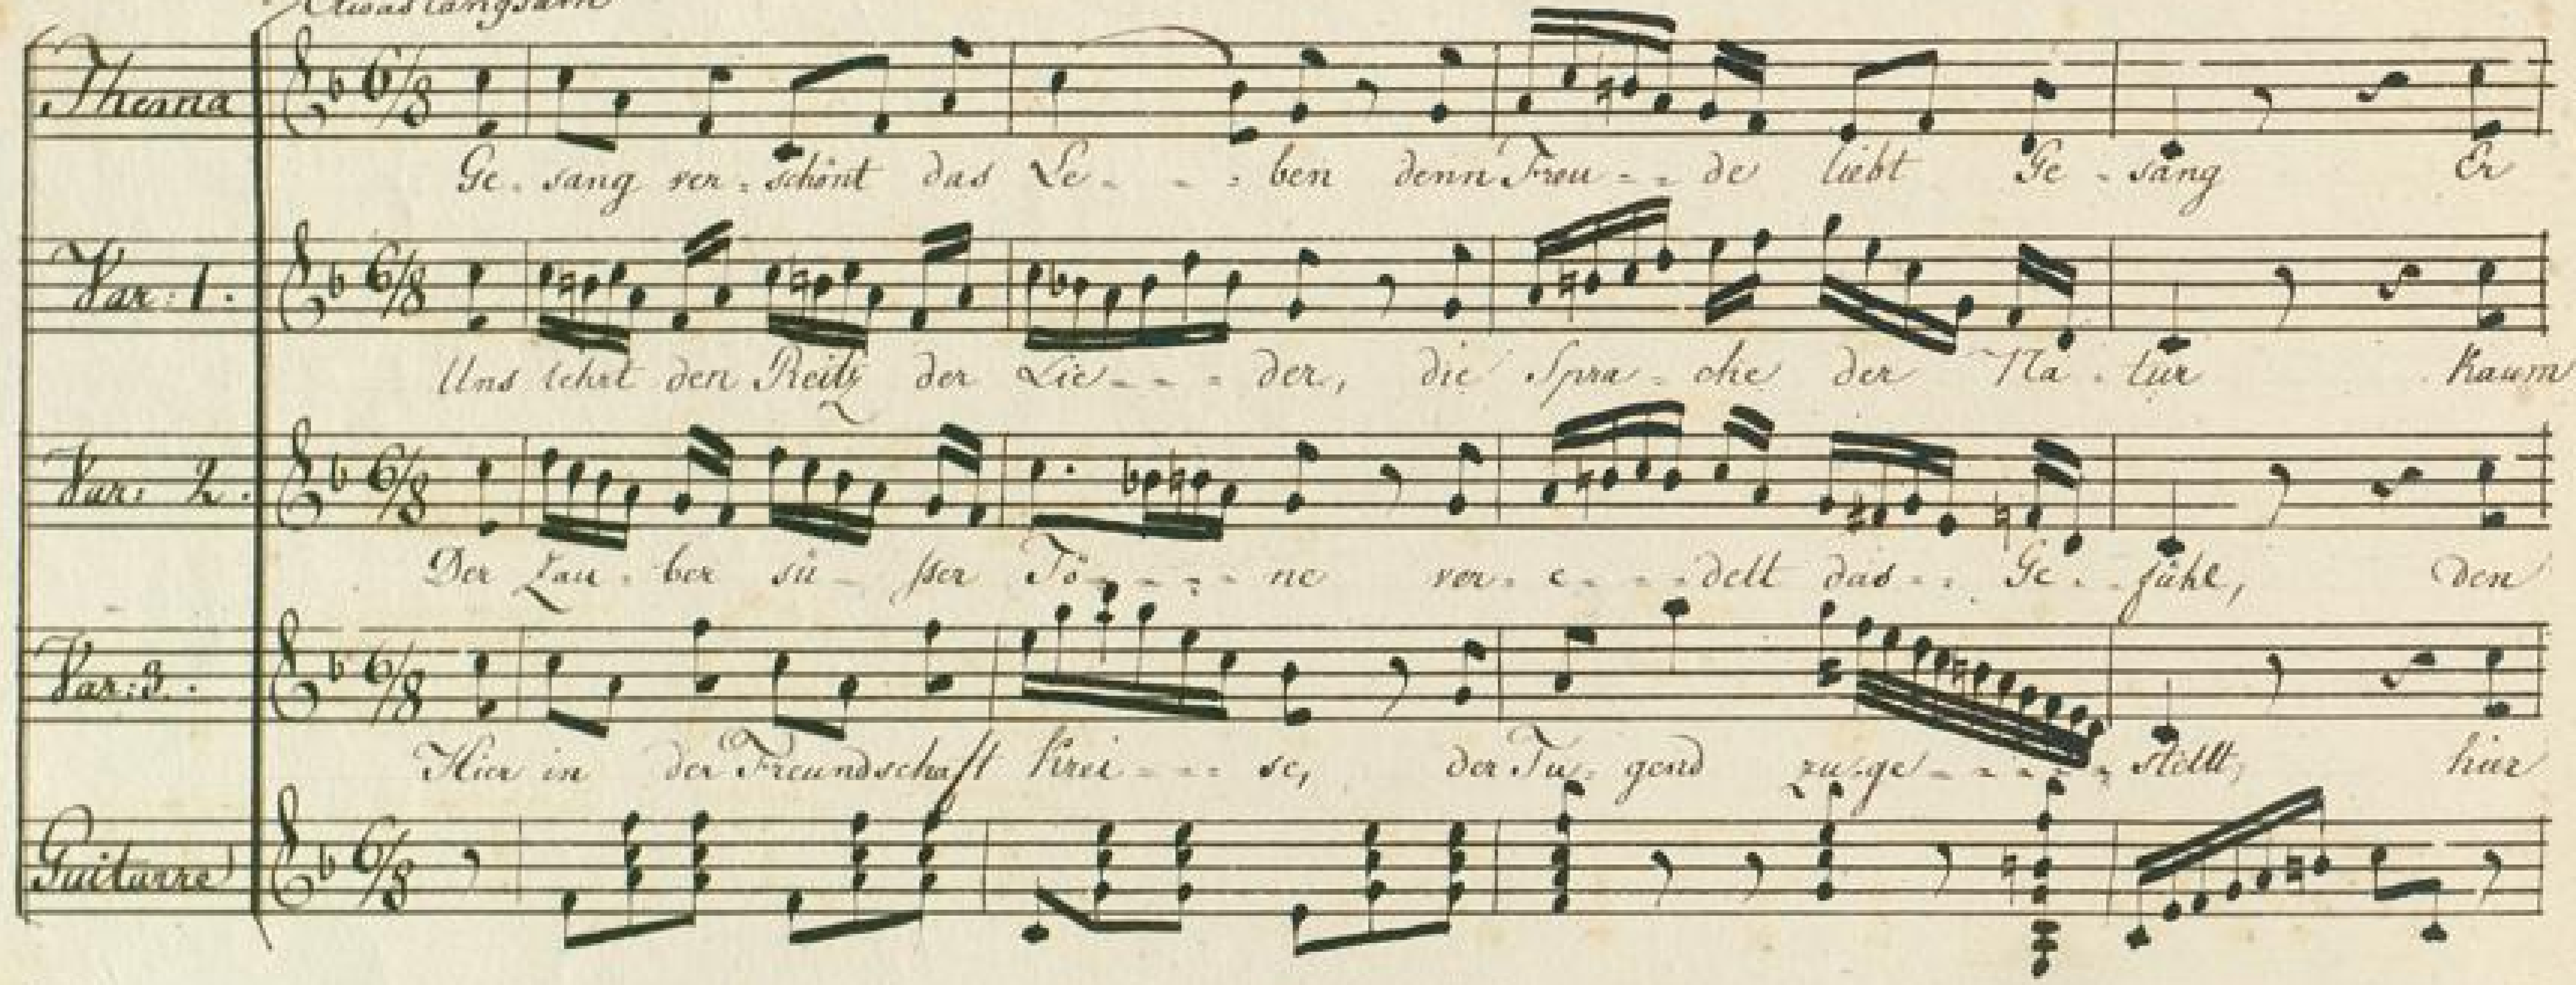 Etwas langsam
Thema 6/8
Ge - sang ver - schönt das Le - - - ben denn Freu - - de liebt Ge - sang Er
Var: 1. 6/8
Uns lehrt den Reitz der Lie - - - der, die Spra - che der Na - tur Kaum
Var: 2. 6/8
Der Zau - ber sü - sser Tö - - - - ne ver - e - - - delt das - - Ge - fühl, den
Var: 3. 6/8
Hier in der Freundschaft Krei - - - se, der Tu - gend zu - ge - - - - - stellt, hier
Guitarre 6/8